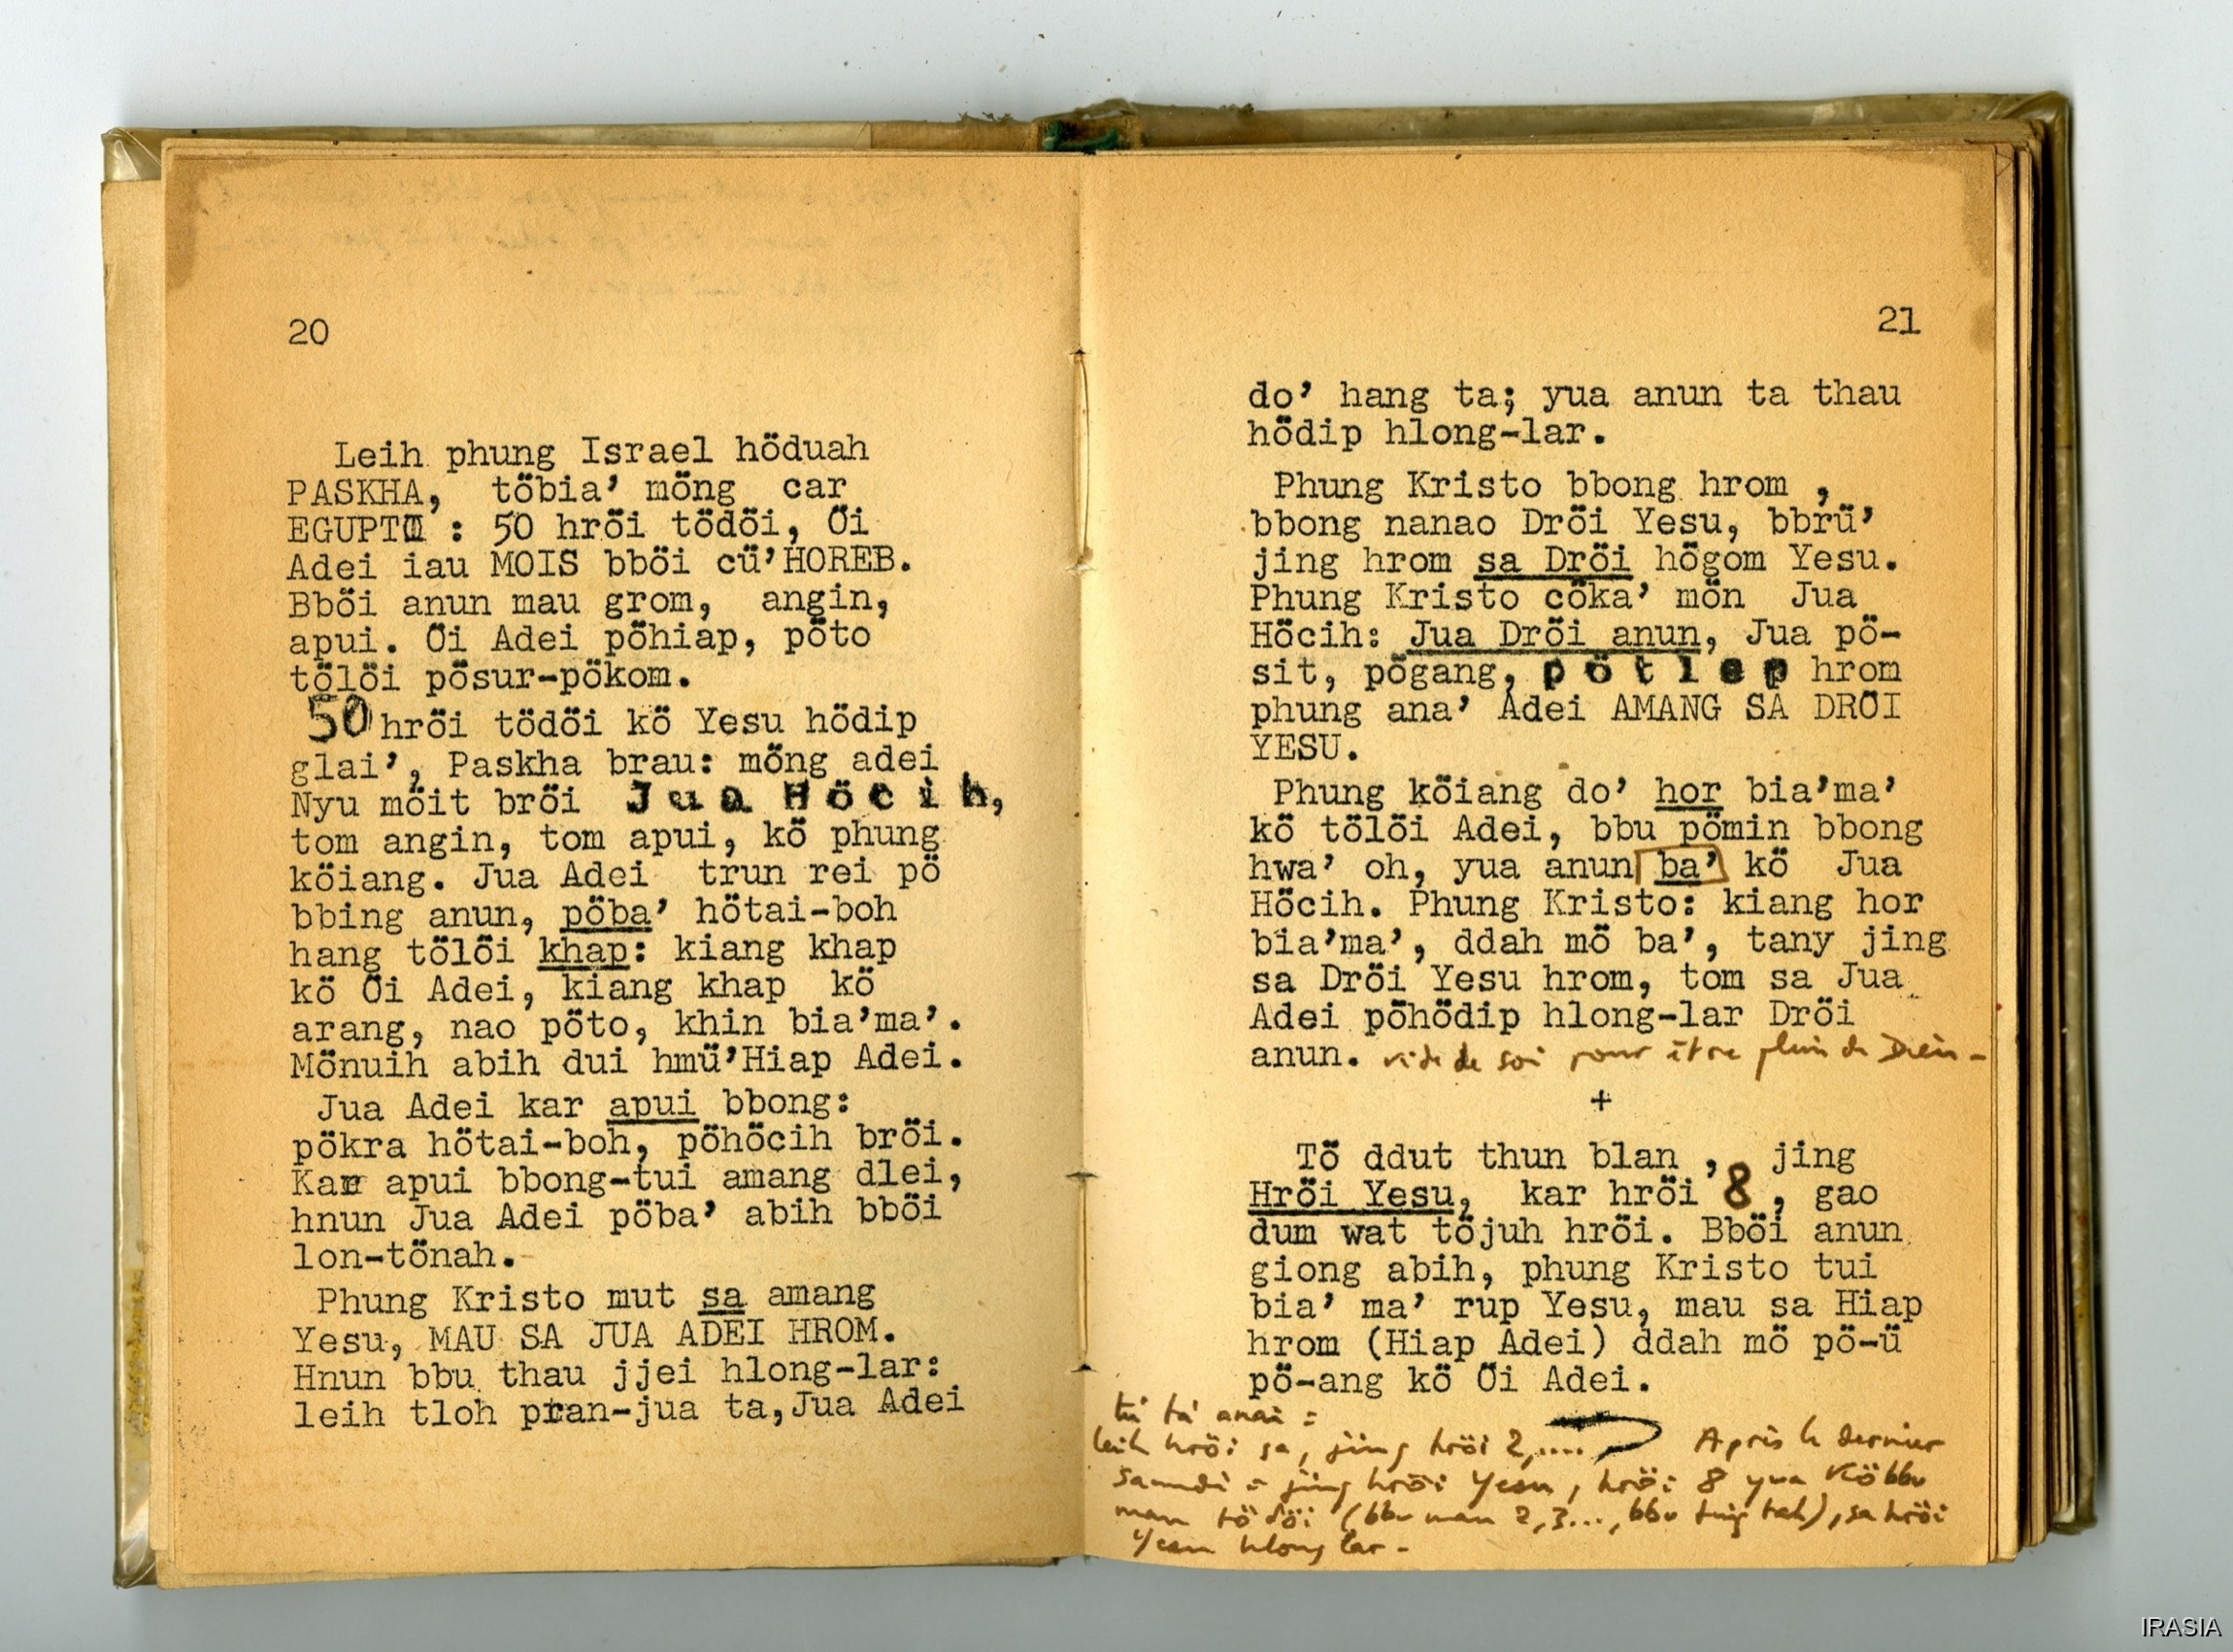 20
Leih phung Israel höduah
PASKHA, töbia’ möng car
EGUPTÜ : 50 hröi tödöi, Öi
Adei iau MOIS bböi cü’HOREB.
Bböi anun mau grom, angin,
apui. Öi Adei pöhiap, pöto
tölöi pösur-pökom.
50 hröi tödöi kö Yesu hödip
glai’, Paskha brau: möng adei
Nyu möit bröi Jua Höcih,
tom angin, tom apui, kö phung
köiang. Jua Adei trun rei pö
bbing anun, pöba’ hötai-boh
hang tölöi khap: kiang khap
kö Öi Adei, kiang khap kö
arang, nao pöto, khin bia’ma’.
Mönuih abih dui hmü’Hiap Adei.
Jua Adei kar apui bbong:
pökra hötai-boh, pöhöcih bröi.
Kar apui bbong-tui amang dlei,
hnun Jua Adei pöba’ abih bböi
lon-tönah.
Phung Kristo mut sa amang
Yesu, MAU SA JUA ADEI HROM.
Hnun bbu thau jjei hlong-lar:
leih tloh pran-jua ta, Jua Adei
21
do’ hang ta; yua anun ta thau
hödip hlong-lar.
Phung Kristo bbong hrom ,
bbong nanao Dröi Yesu, bbrü’
jing hrom sa Dröi högom Yesu.
Phung Kristo cöka’ mön Jua
Höcih: Jua Dröi anun, Jua pö-
sit, pögang, pötlep hrom
phung ana’ Adei AMANG SA DRÖI
YESU.
Phung köiang do’ hor bia’ma’
kö tölöi Adei, bbu pömin bbong
hwa’ oh, yua anun ba’ kö Jua
Höcih. Phung Kristo: kiang hor
bia’ma’, ddah mö ba’, tany jing
sa Dröi Yesu hrom, tom sa Jua
Adei pöhödip hlong-lar Dröi
anun. vide de soi pour être plein de Dieu -
+
Tö ddut thun blan , jing
Hröi Yesu, kar hröi 8 , gao
dum wat töjuh hröi. Bböi anun
giong abih, phung Kristo tui
bia’ ma’ rup Yesu, mau sa Hiap
hrom (Hiap Adei) ddah mö pö-ü
pö-ang kö Öi Adei.
anai =
leih hröi sa, jing hröi 2,.... Après le dernier
samedi = jing hröi Yesu, hröi 8 yua kö bbu
mau tödöi (bbu mau 2,3..., bbu tah), sa hröi
Yesu hlong lar -
IRASIA